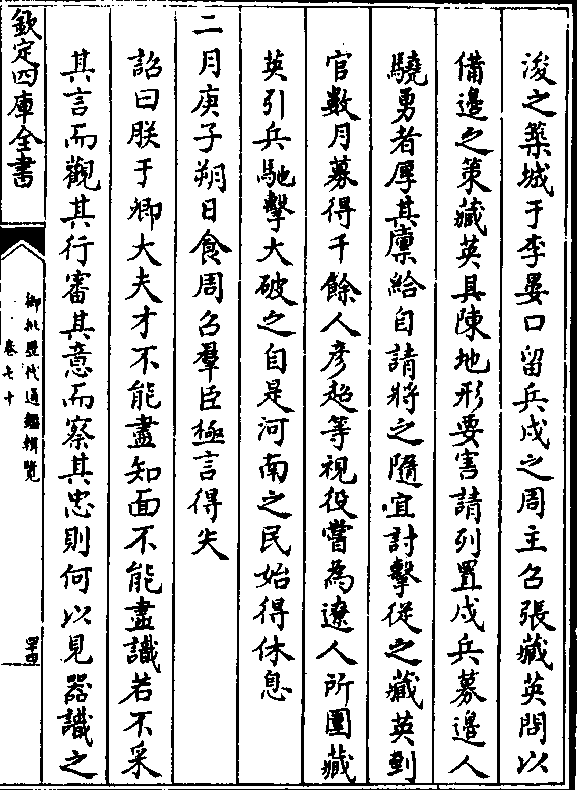 浚之築城于李晏口留兵戍之周主召張藏英問以
備邊之策藏英具陳地形要害請列置戍兵募邊人
驍勇者厚其廩給自請將之隨宜討擊從之藏英到
官數月募得千餘人彦超等視役嘗為遼人所圍藏
英引兵馳擊大破之自是河南之民始得休息
二月庚子朔日食周召羣臣極言得失
詔曰朕于卿大夫才不能盡知面不能盡識若不采
其言而觀其行審其意而察其忠則何以見器識之
欽定四庫全書
御批歷代通鑑輯覽
卷七十
四四